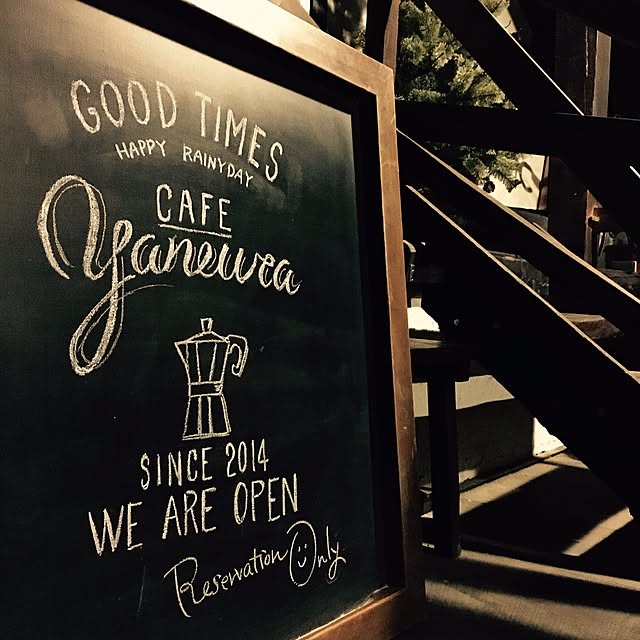 GOOD TIMES
HAPPY RAINYDAY
CAFE
Yaneura
SINCE 2014
WE ARE OPEN
Reservation Only